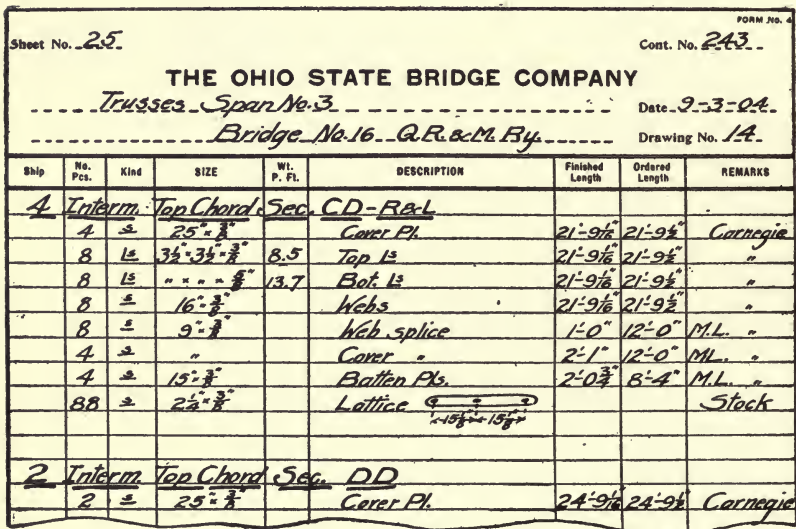 FORM NO. 4
Sheet No. 25 Cont. No. 243
THE OHIO STATE BRIDGE COMPANY
Trusses Span No. 3 Date 9-3-04
Bridge No. 16 Q.R.&M. Ry. Drawing No. 14
Ship No. Pcs. Kind SIZE Wt. P. Ft. DESCRIPTION Finished Length Ordered Length REMARKS
4 Interm. Top Chord Sec. CD-R&L
4 s 25"×3/8" Cover Pl. 21'-9 1/16" 21'-9 1/2" Carnegie
8 Ls 3 1/2"×3 1/2"×3/8" 8.5 Top Ls 21'-9 1/16" 21'-9 1/2" "
8 Ls " × " × 5/8" 13.7 Bot. Ls 21'-9 1/16" 21'-9 1/2" "
8 s 16"×3/8" Webs 21'-9 1/16" 21'-9 1/2" "
8 s 9"×3/8" Web splice 1'-0" 12'-0" M.L. "
4 s " Cover " 2'-1" 12'-0" ML. "
4 s 15"×3/8" Batten Pls. 2'-0 3/4" 8'-4" M.L. "
88 s 2 1/4"×3/8" Lattice Stock
15 1/8" 15 1/8"
2 Interm. Top Chord Sec. DD
2 s 25"×3/8" Cover Pl. 24'-9 1/16" 24'-9 1/2" Carnegie